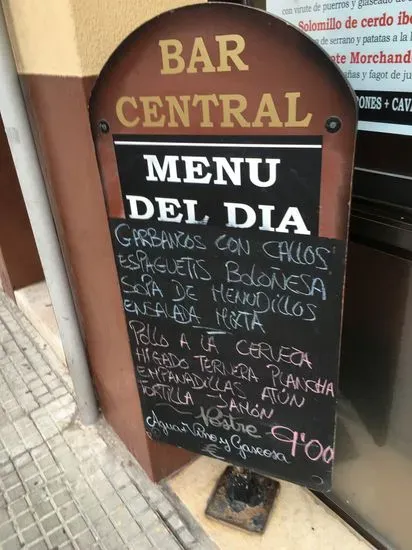 con virute de puerros y glaseado de
Solomillo de cerdo ibé
de serrano y patatas a la
ote Morchand
añas y fagot de ju
ONES + CAVA
BAR
CENTRAL
MENU
DEL DIA
GARBANZOS CON CALLOS
ESPAGUETIS BOLOÑESA
SOPA DE MENUDILLOS
ENSALADA MIXTA
POLLO A LA CERVEZA
HIGADO TERNERA PLANCHA
EMPANADILLAS ATÚN
TORTILLA → JAMÓN
Postre
Agua, Vino y Gaseosa
9'00
€